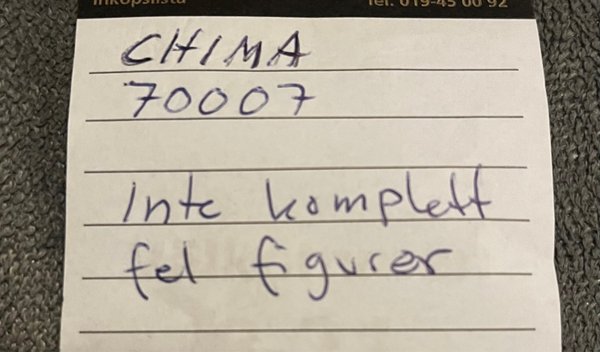 Inköpslista Tel. 019-45 00 92
CHIMA
70007
Inte komplett
fel figurer